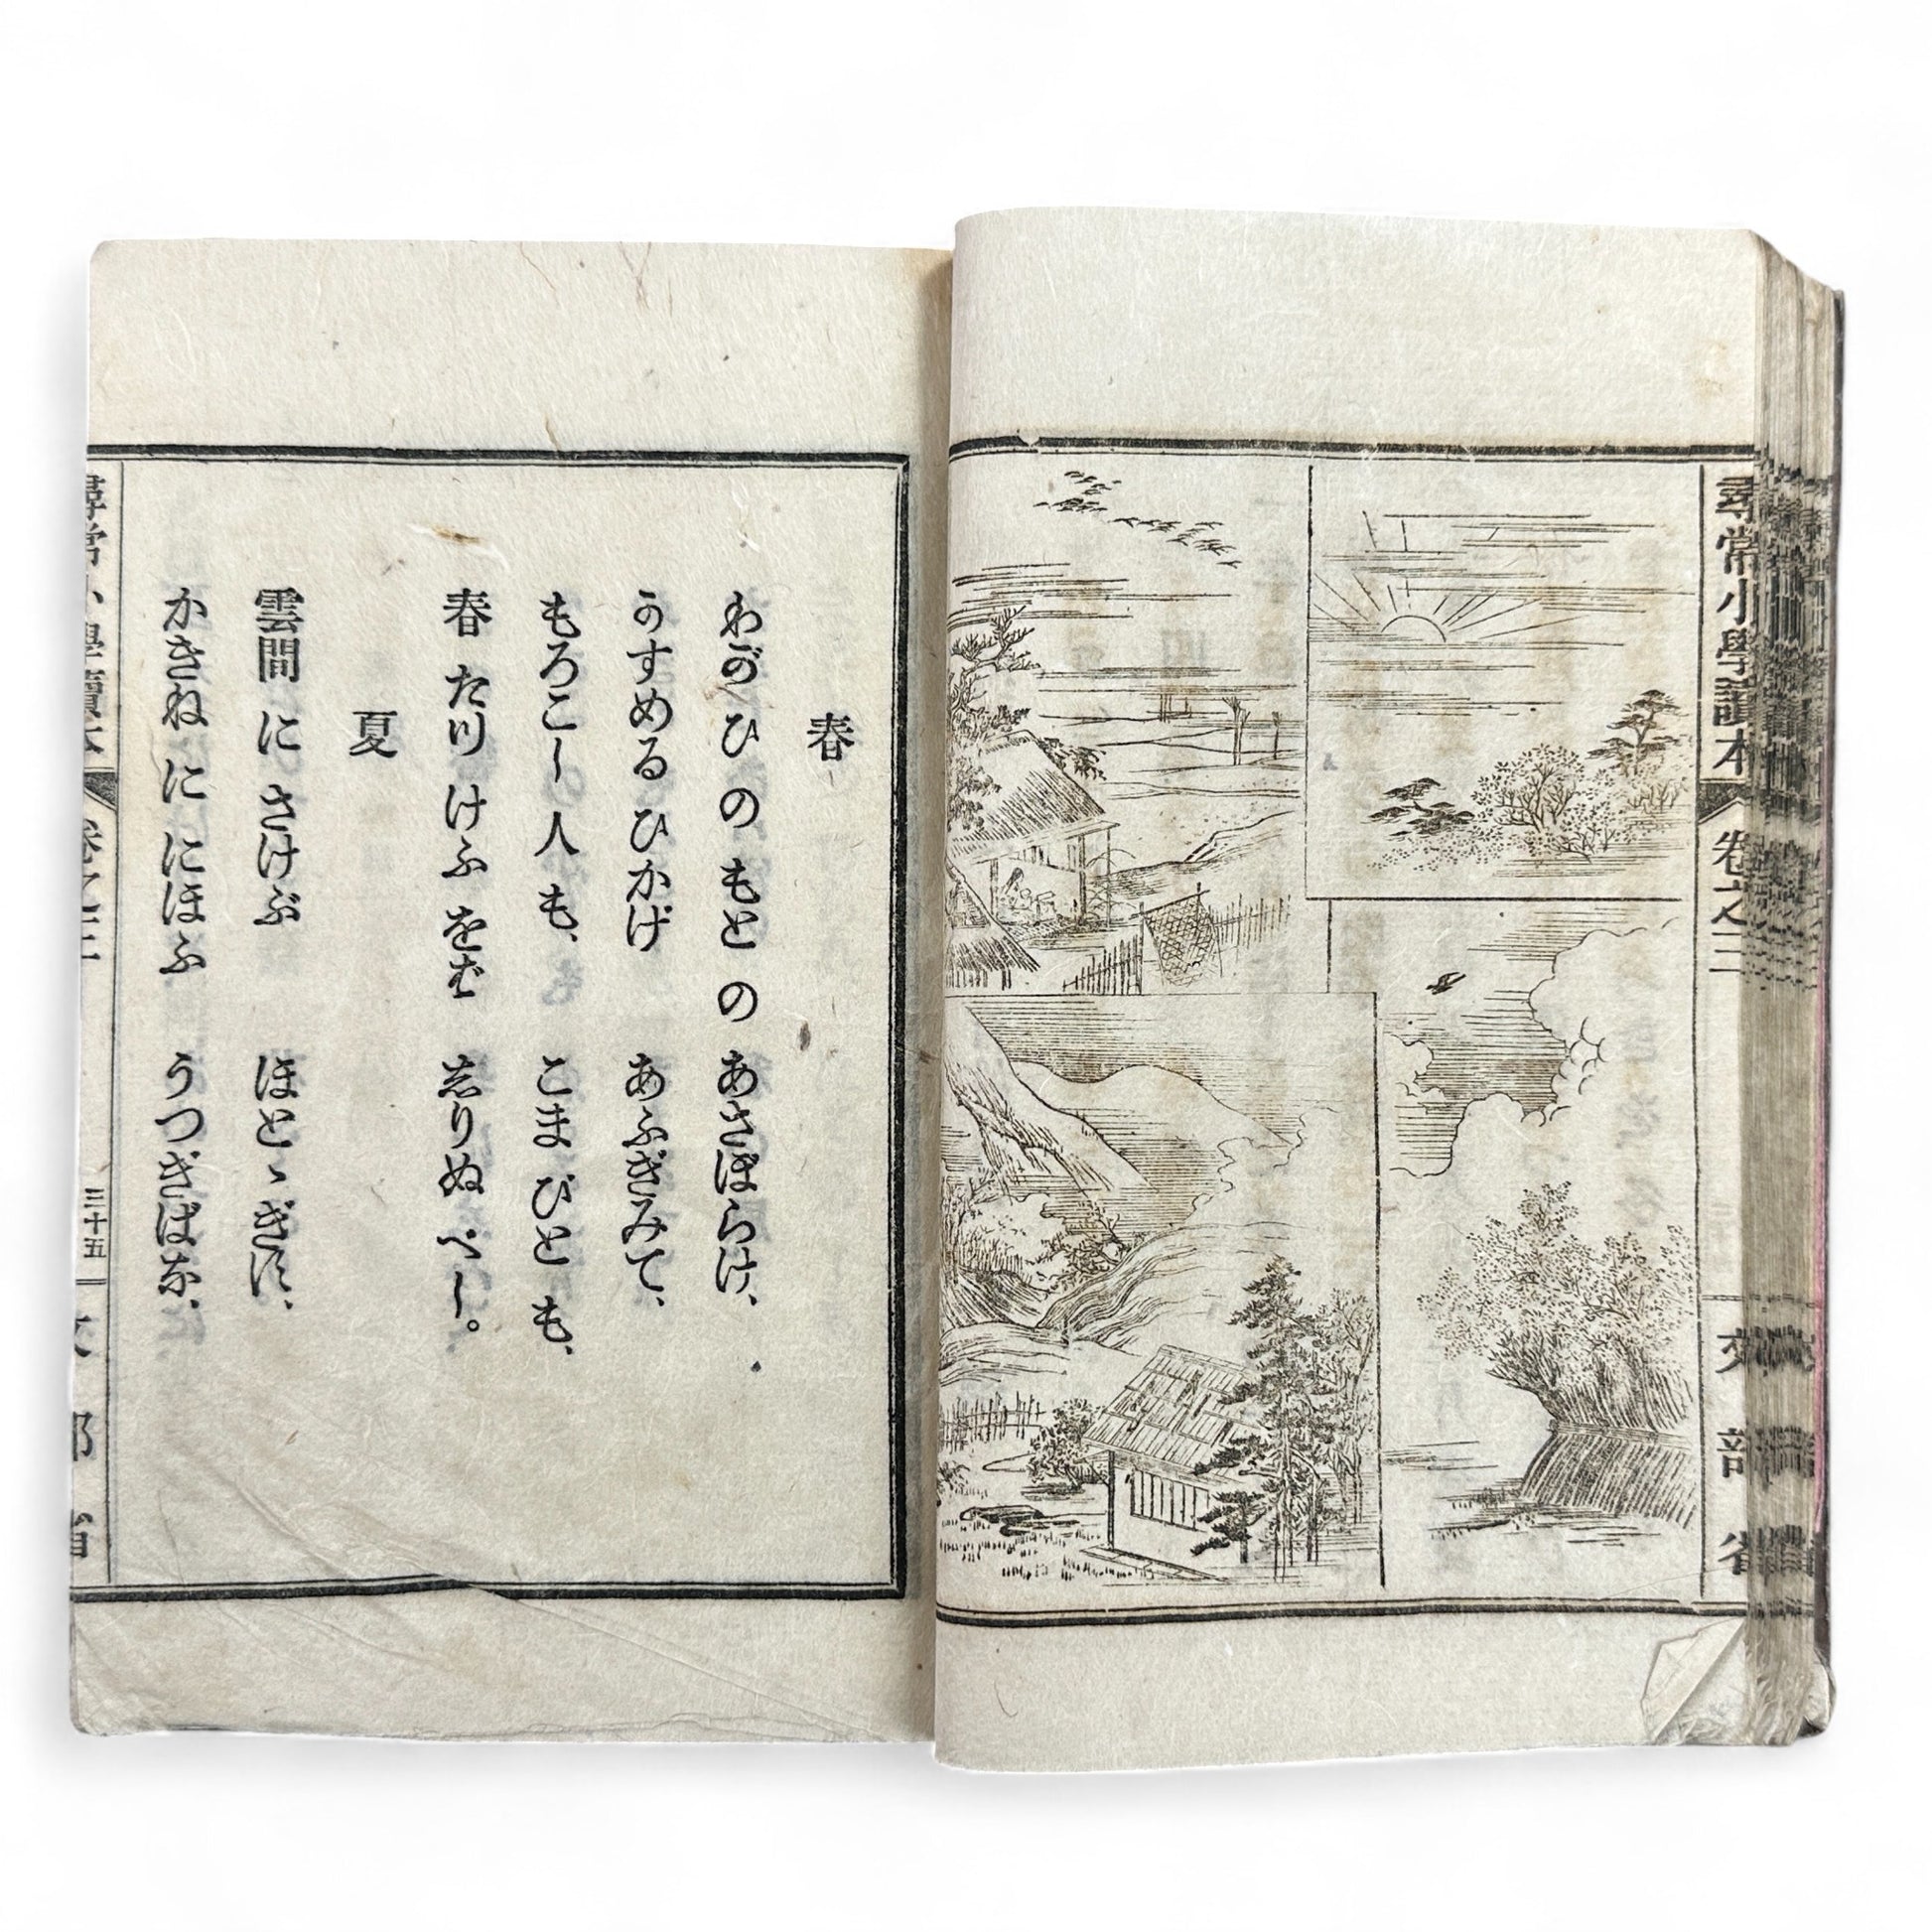 尋常小學讀本
卷之三
文部省
春
わがひのもとの あさぼらけ、
かすめるひかげ あふぎみて、
もろこし人も、 こまびとも、
春たつけふをば しりぬべし。
夏
雲間にさけぶ ほとゝぎす、
かきねににほふ うつぎばな、
尋常小學讀本
卷之三
三十五
文部省